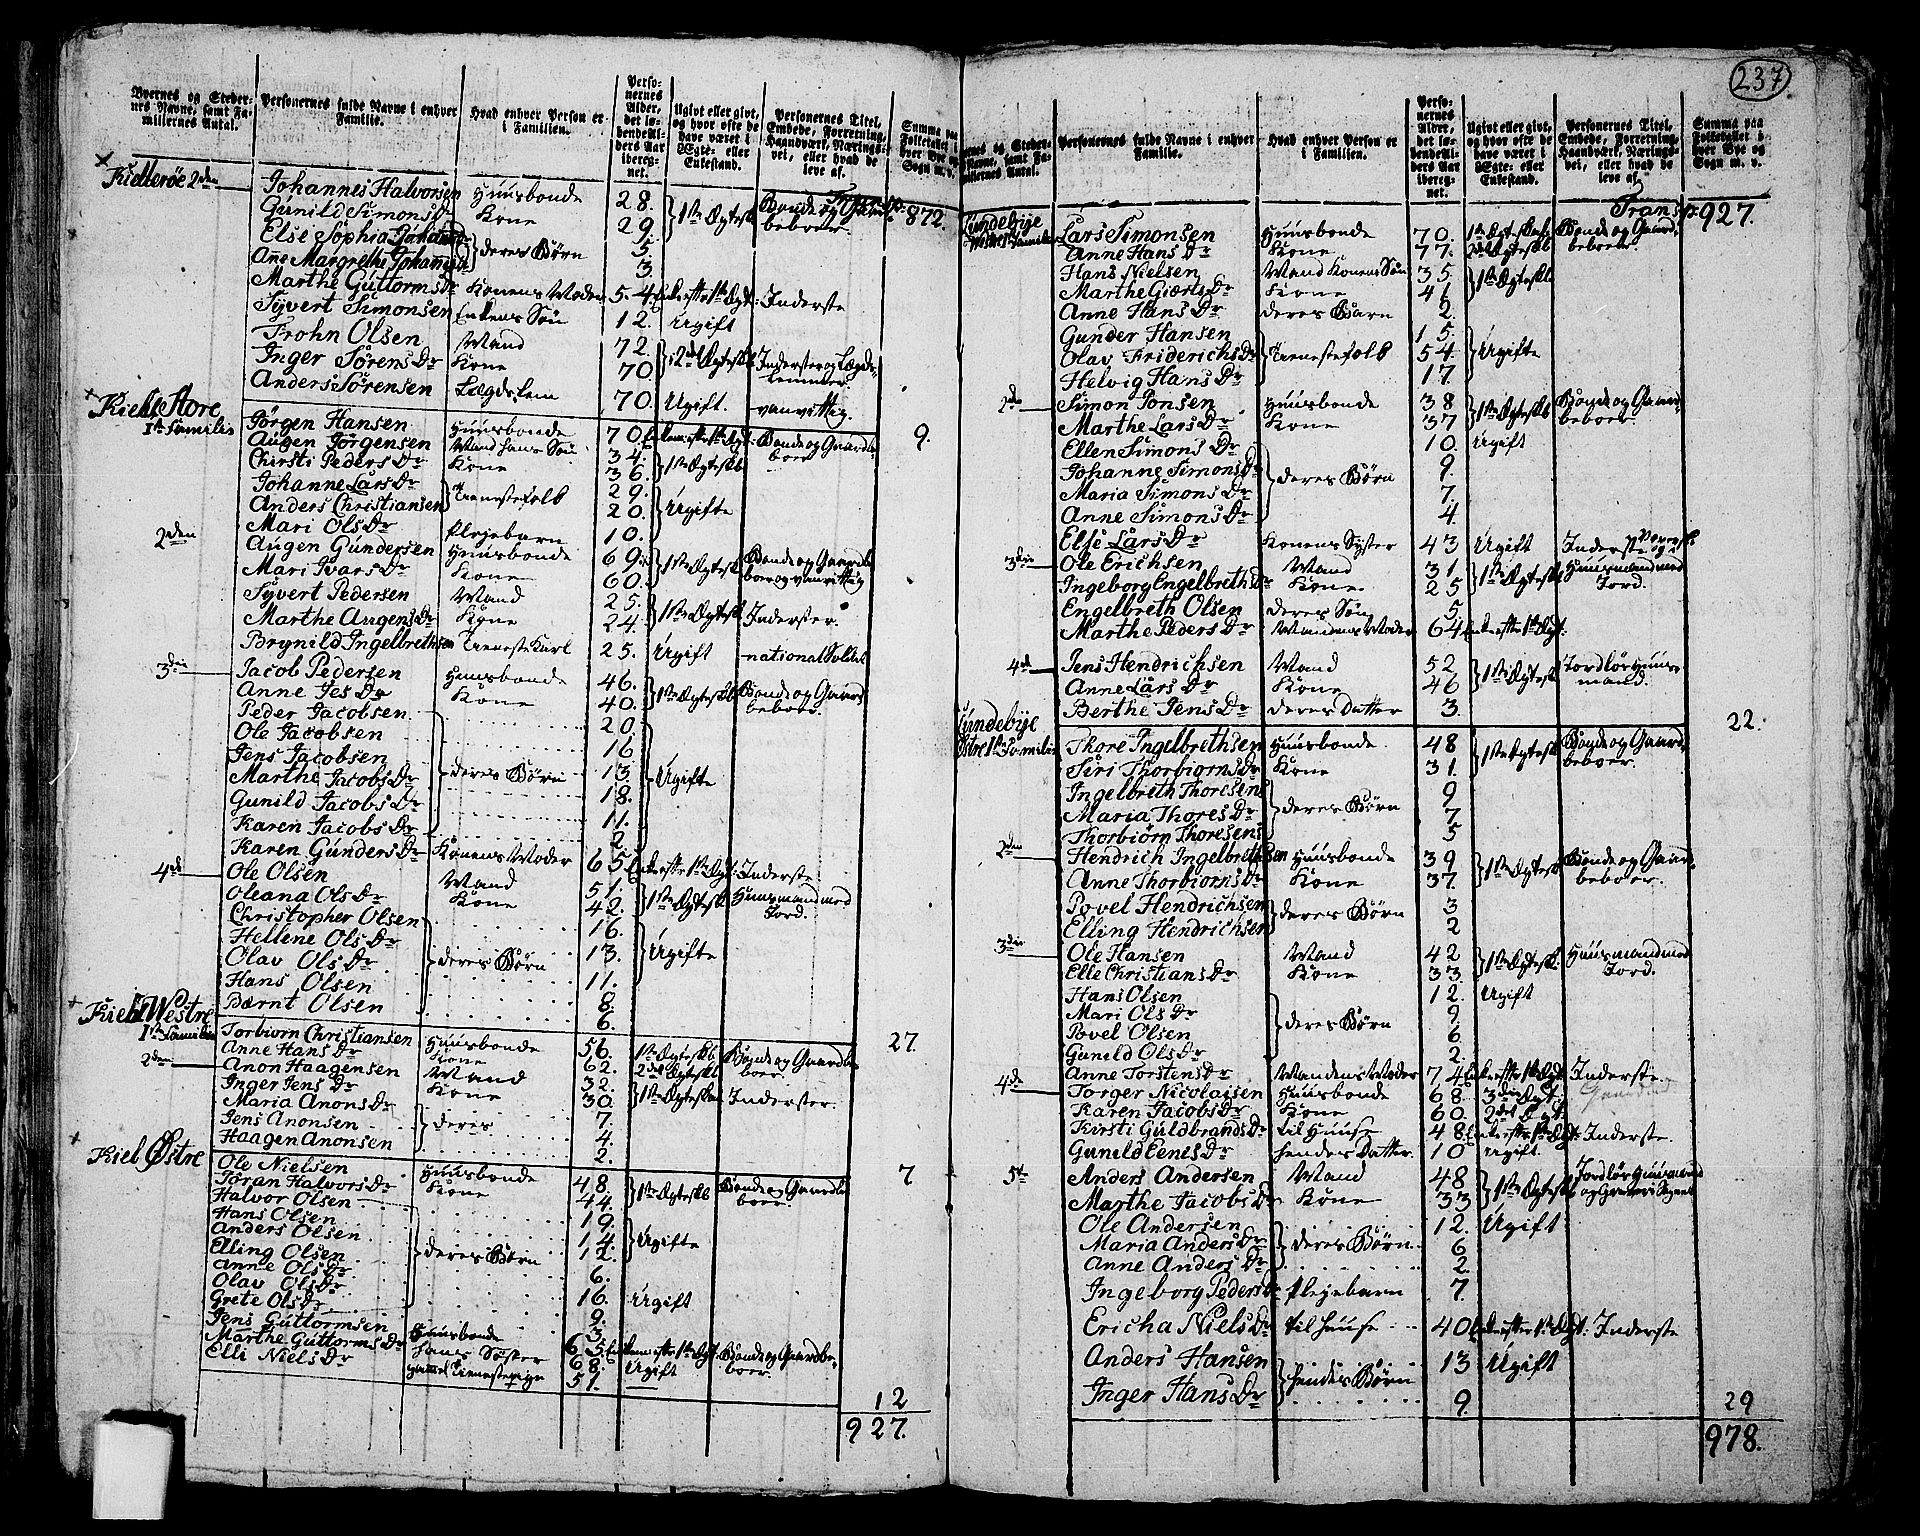 237
Byernes og Stedernes Navne, samt Familiernes Antal.
Personernes fulde Navne i enhver Familie.
Hvad enhver Person er i Familien.
Personernes Alder, det løbende Alders Aar iberegnet.
Ugivt eller givt, og hvor ofte de have været i Ægte- eller Enkestand.
Personernes Titel, Embede, Forretning, Haandværk, Næringsvei, eller hvad de leve af.
Summa paa Folketallet i hver Bye og Sogn m. v.
Transp: 872.
Kiellerøe 2den Johannes Halvorsen Huusbonde 28. 1ste Ægtesk Bonde og Gaardbeboer
Gunild Simons Dr Kone 29.
Else Sophia Johannes Dr deres Børn 5.
Ane Margrethe Johannes Dr 3
Marthe Guttorms Dr Konens Moder 54 Enke efter 1ste Ægt: Inderste
Syvert Simonsen Enkens Søn 12. Ugift
Frohn Olsen Mand 72. 2det Ægtesk Inderster og Lægdslemmer
Inger Sørens Dr Kone 70
Anders Sørensen Lægdslem 70 Ugift. vanvittig 9.
Kiell Store 1ste Familie Jørgen Hansen Huusbonde 70. Enkem: efter 1ste Ægt: Bonde og Gaardbeboer
Augen Jørgensen Mand hans Søn 34. 1ste Ægtesk
Chirsti Peders Dr Kone 36
Johanne Lars Dr Tienestefolk 29. Ugifte
Anders Christiansen 20.
Mari Ols Dr Plejebarn 10.
2den Augen Gundersen Huusbonde 69. 1ste Ægtesk Bonde og Gaardbeboer og vanvittig
Mari Ivars Dr Kone 60.
Syvert Pedersen Mand 25. 1ste Ægtesk Inderster.
Marthe Augens Dr Kone 24.
Brynild Ingelbrethsen Tieneste Karl 25. Ugift national Soldat
3die Jacob Pedersen Huusbonde 46. 1ste Ægtesk Bonde og Gaardbeboer
Anne Jes Dr Kone 40.
Peder Jacobsen deres Børn 20. Ugifte
Ole Jacobsen 16
Jens Jacobsen 13
Marthe Jacobs Dr 18.
Gunild Jacobs Dr 11.
Karen Jacobs Dr 2.
Karen Gunders Dr Konens Moder 65 Enke efter 1ste Ægt: Inderste
4de Ole Olsen Mand 51. 1ste Ægtesk Huusmand med Jord.
Oleana Ols Dr Kone 42.
Christopher Olsen deres Børn 16. Ugifte
Hellene Ols Dr 13.
Olav Ols Dr 11.
Hans Olsen 8.
Bærnt Olsen 6. 27.
Kiell Westre 1ste Familie Torbiorn Christiansen Huusbonde 56. 1ste Ægtesk Bonde og Gaardbeboer.
Anne Hans Dr Kone 62. 2det Ægtesk
2den Anon Haagensen Mand 32. 1ste Ægtesk Inderster.
Inger Jens Dr Kone 30
Maria Anons Dr deres 7.
Jens Anonsen 4.
Haagen Anonsen 2. 7
Kiel Østre Ole Nielsen Huusbonde 48 1ste Ægtesk Bonde og Gaardbeboer.
Jøran Halvors Dr Kone 44.
Halvor Olsen deres Børn 19. Ugifte
Hans Olsen 14
Anders Olsen 12.
Elling Olsen 6.
Anne Ols Dr 16. Ugift
Olav Ols Dr 9.
Grete Ols Dr 3
Jens Guttormsen Huusbonde 65 Enkem: efter 1ste Ægt: Bonde og Gaardbeboer.
Marthe Guttorms Dr hans Søster 68. Ugift
Elli Niels Dr Tienestepige 51.
12
927.
Byernes og Stedernes Navne, samt Familiernes Antal.
Personernes fulde Navne i enhver Familie.
Hvad enhver Person er i Familien.
Personernes Alder, det løbende Alders Aar iberegnet.
Ugivt eller givt, og hvor ofte de have været i Ægte- eller Enkestand.
Personernes Titel, Embede, Forretning, Haandværk, Næringsvei, eller hvad de leve af.
Summa paa Folketallet i hver Bye og Sogn m. v.
Transp: 927.
Lundebye Westre 1ste Familie Lars Simonsen Huusbonde 70. 1ste Ægtesk Bonde og Gaardbeboer.
Anne Hans Dr Kone 77. 2det Ægtesk
Hans Nielsen Mand Konens Søn 35. 1ste Ægtesk
Marthe Giærts Dr Kone 41
Anne Hans Dr deres Barn 2.
Gunder Hansen Tienestefolk 15. Ugifte
Olav Friderichs Dr 54
Helvig Hans Dr 17.
2den Simon Jonsen Huusbonde 38 1ste Ægtesk Bonde og Gaardbeboer.
Marthe Lars Dr Kone 37
Ellen Simons Dr deres Børn 10. Ugift
Johanne Simons Dr 9.
Maria Simons Dr 7.
Anne Simons Dr 4.
Else Lars Dr Konens Syster 43 Ugift Inderste
3die Ole Erichsen Mand 31. 1ste Ægtesk Huusmand med Jord.
Ingeborg Engelbreth Dr Kone 25
Engelbreth Olsen deres Søn 5
Marthe Peders Dr Mandens Moder 64 Enke efter 1ste Ægt:
4de Jens Hendrichsen Mand 52 1ste Ægtesk Jordløs Huusmand.
Anne Lars Dr Kone 46
Berthe Jens Dr deres Datter 3. 22.
Lundebye Østre 1ste Familie Thore Ingelbrethsen Huusbonde 48 1ste Ægtesk Bonde og Gaardbeboer.
Siri Thorbiorns Dr Kone 31.
Ingelbreth Thoresens deres Børn 9
Maria Thores Dr 7.
Thorbiørn Thoresens 5
2den Hendrich Ingelbrethsen Huusbonde 39 1ste Ægtesk Bonde og Gaardbeboer.
Anne Thorbiorns Dr Kone 37.
Povel Hendrichsen deres Børn 3
Elling Hendrichsen 2
3die Ole Hansen Mand 42 1ste Ægtesk: Huusmand med Jord.
Elle Christians Dr Kone 33.
Hans Olsen deres Børn 12. Ugift
Mari Ols Dr 9
Povel Olsen 6
Gunild Ols Dr 2.
Anne Torstens Dr Mandens Moder 74. Enke efter 1ste Ægt Inderste
4de Torger Nicolaisen Huusbonde 68. 3die Ægt:
Karen Jacobs Dr Kone 60. 2det Ægt.
Kirsti Guldbrands Dr til Huuse 48. Enke efter 1ste Ægt: Inderste.
Gunild Enes Dr hendes Datter. 10 Ugift.
5te Anders Andersen Mand 48 1ste Ægtesk Jordløs Huusmand
Marthe Jacobs Dr Kone 33
Ole Andersen deres Børn 12. Ugift
Maria Anders Dr 6
Anne Anders Dr 2.
Ingeborg Peders Dr Plejebarn 7.
Ericha Niels Dr til Huuse 40 Enke efter 1ste Ægt: Inderste
Anders Hansen hendes Børn 13 Ugift
Inger Hans Dr 9
29
978.